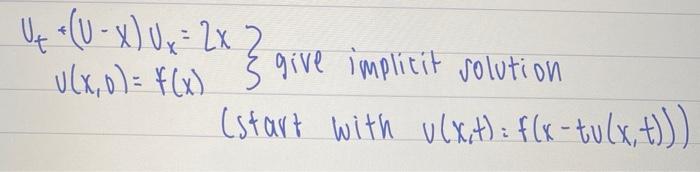 Ut + (U - x) Ux = 2x } give implicit solution
U(x,0) = f(x)
(start with u(x,t) = f(x - tu(x,t)))